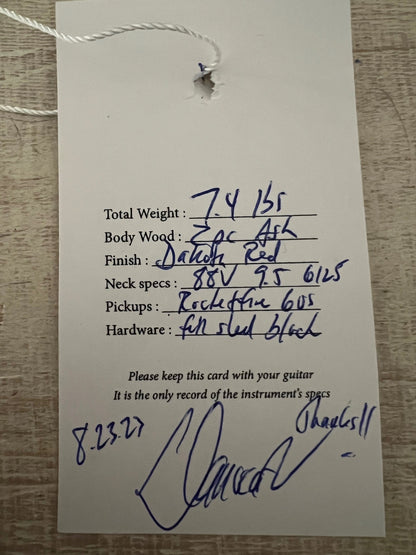 Total Weight : 7.4 lbs
Body Wood : 2 pc Ash
Finish : Dakota Red
Neck specs : 88V 9.5 6125
Pickups : Rocketfire 60s
Hardware : full sled black
Please keep this card with your guitar
It is the only record of the instrument's specs
8.23.23
Thanks!!